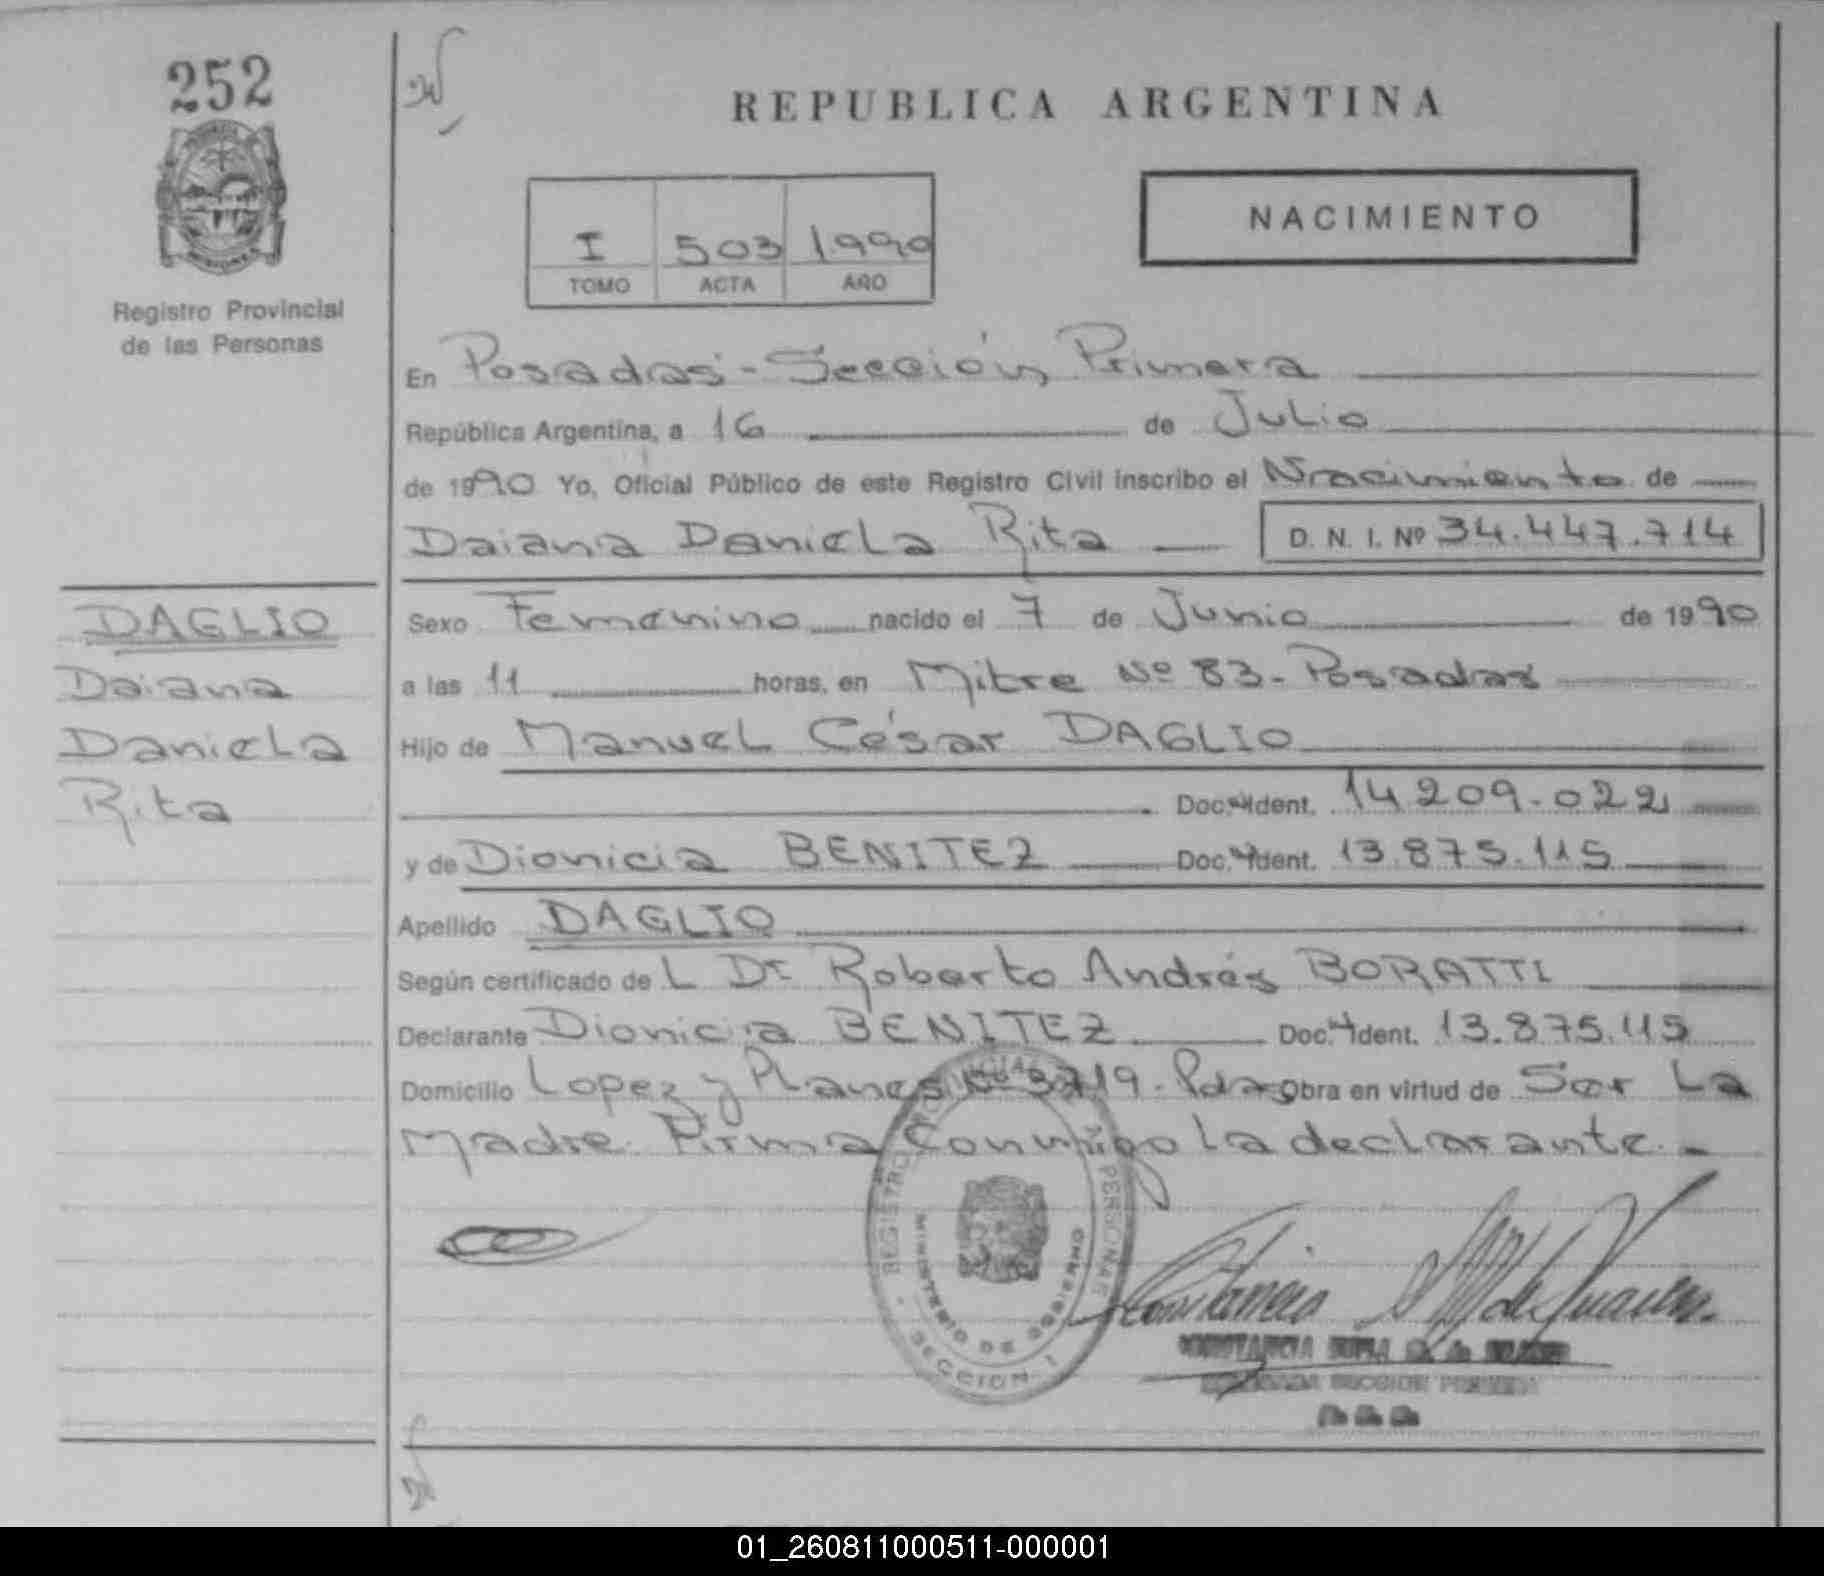 252
REPUBLICA ARGENTINA
NACIMIENTO
I 503 1990
TOMO ACTA AÑO
Registro Provincial
de las Personas
En Posadas - Sección Primera
República Argentina, a 16 de Julio
de 1990 Yo, Oficial Público de este Registro Civil inscribo el Nacimiento de
Daiana Daniela Rita D. N. I. Nº 34.447.714
DAGLIO
Daiana
Daniela
Rita
Sexo Femenino nacido el 7 de Junio de 1990
a las 11 horas, en Mitre Nº 83 - Posadas
Hijo de Manuel César DAGLIO
Doc. Ident. 14.209.022
y de Dionicia BENITEZ Doc. Ident. 13.875.115
Apellido DAGLIO
Según certificado de L Dr Roberto Andrés BORATTI
Declarante Dionicia BENITEZ Doc. Ident. 13.875.115
Domicilio Lopez y Planes Nº 3719 - Pdas Obra en virtud de Ser La
Madre. Firma Conmigo la declarante. -
REGISTRO PERSONAS
MINISTERIO DE GOBIERNO
SECCION 1
CONSTANCIA
SECCION PRIMERA
01_260811000511-000001